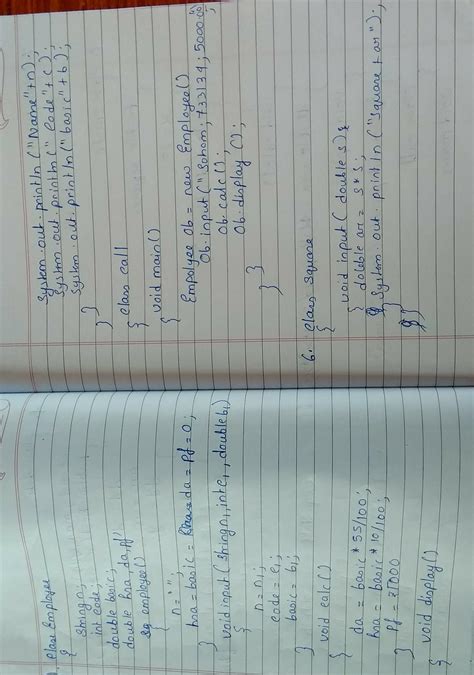 class Employee
{
String n;
int code;
double basic;
double hra, da, pf;
employee()
{
n = " ";
hra = basic = da = Pf = 0;
}
void input ( String n1, int c1, double b1)
{
n = n1;
code = c1;
basic = b1;
}
void calc ()
{
da = basic * 55/100;
hra = basic * 10/100;
Pf = 27000
}
void display()
{
System.out.println ("Name"+n);
System.out.println (" Code"+c);
System.out.println ("basic"+b);
}
}
class call
{
void main()
{
Empolyee ob = new Employee()
Ob.input ("Sohom; 733134; 5000.00);
Ob.calc();
Ob.display ();
}
}
6. class Square
{
void input ( double s) {
{ doleble are = s * s;
System.out.println ("Square + ar") ;
}
}